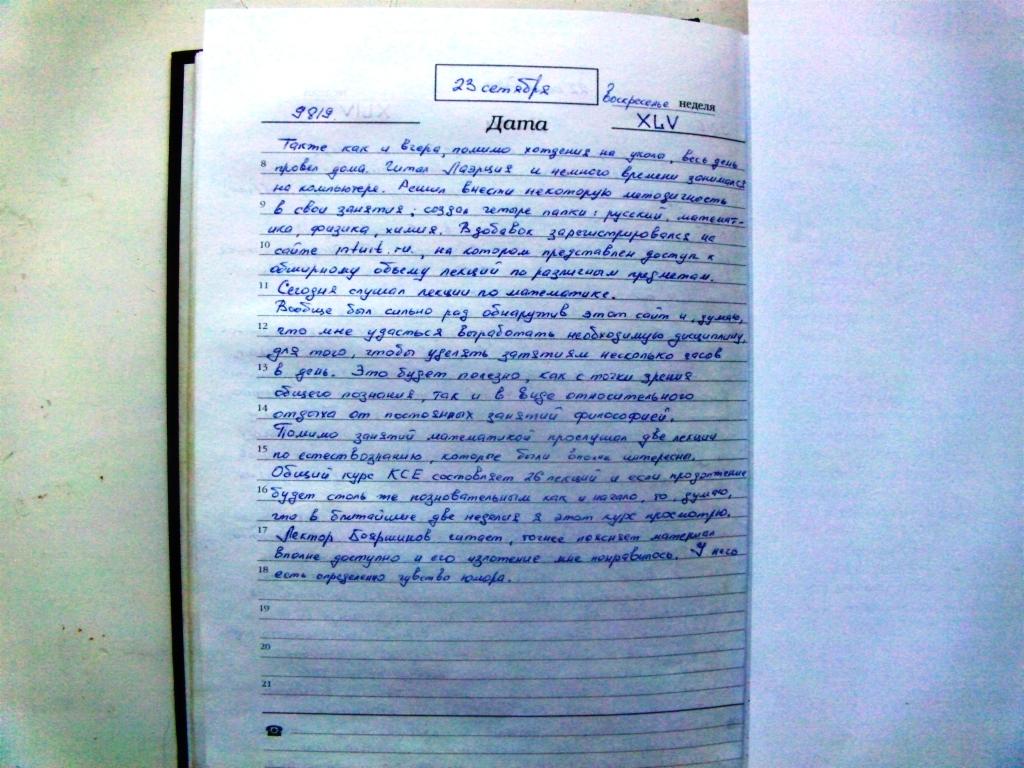 23 сетября
воскресенье неделя
9819
Дата
XLV
Также как и вчера, помимо хождения на укола, весь день
8 провел дома. Читал Лаэрция и немного времени занимался
на компьютере. Решил внести некоторую методичность
9 в свои занятия; создал четыре папки: русский, математ-
ика, физика, химия. Вдобавок зарегистрировался на
10 сайте intuit.ru., на котором представлен доступ к
обширному объему лекций по различным предметам.
11 Сегодня слушал лекции по математике.
Вообще был сильно рад обнаружив этот сайт и, думаю,
12 что мне удасться выработать необходимую дисциплину,
для того, чтобы уделять затятиям несколько часов
13 в день. Это будет полезно, как с точки зрения
общего познания, так и в виде относительного
14 отдыха от постоянных занятий философией.
Помимо занятий математикой прослушал две лекции
15 по естествознанию, которые были вполне интересны.
Общий курс КСЕ составляет 26 лекций и если продолжение
16 будет столь же позновательным как и начало, то, думаю,
что в ближайшие две неделия я этот курс просмотрю.
17 Лектор Бояршинов читает, точнее поясняет материал
вполне доступно и его изложение мне понравилось. У него
18 есть определенно чувство юмора.
19
20
21